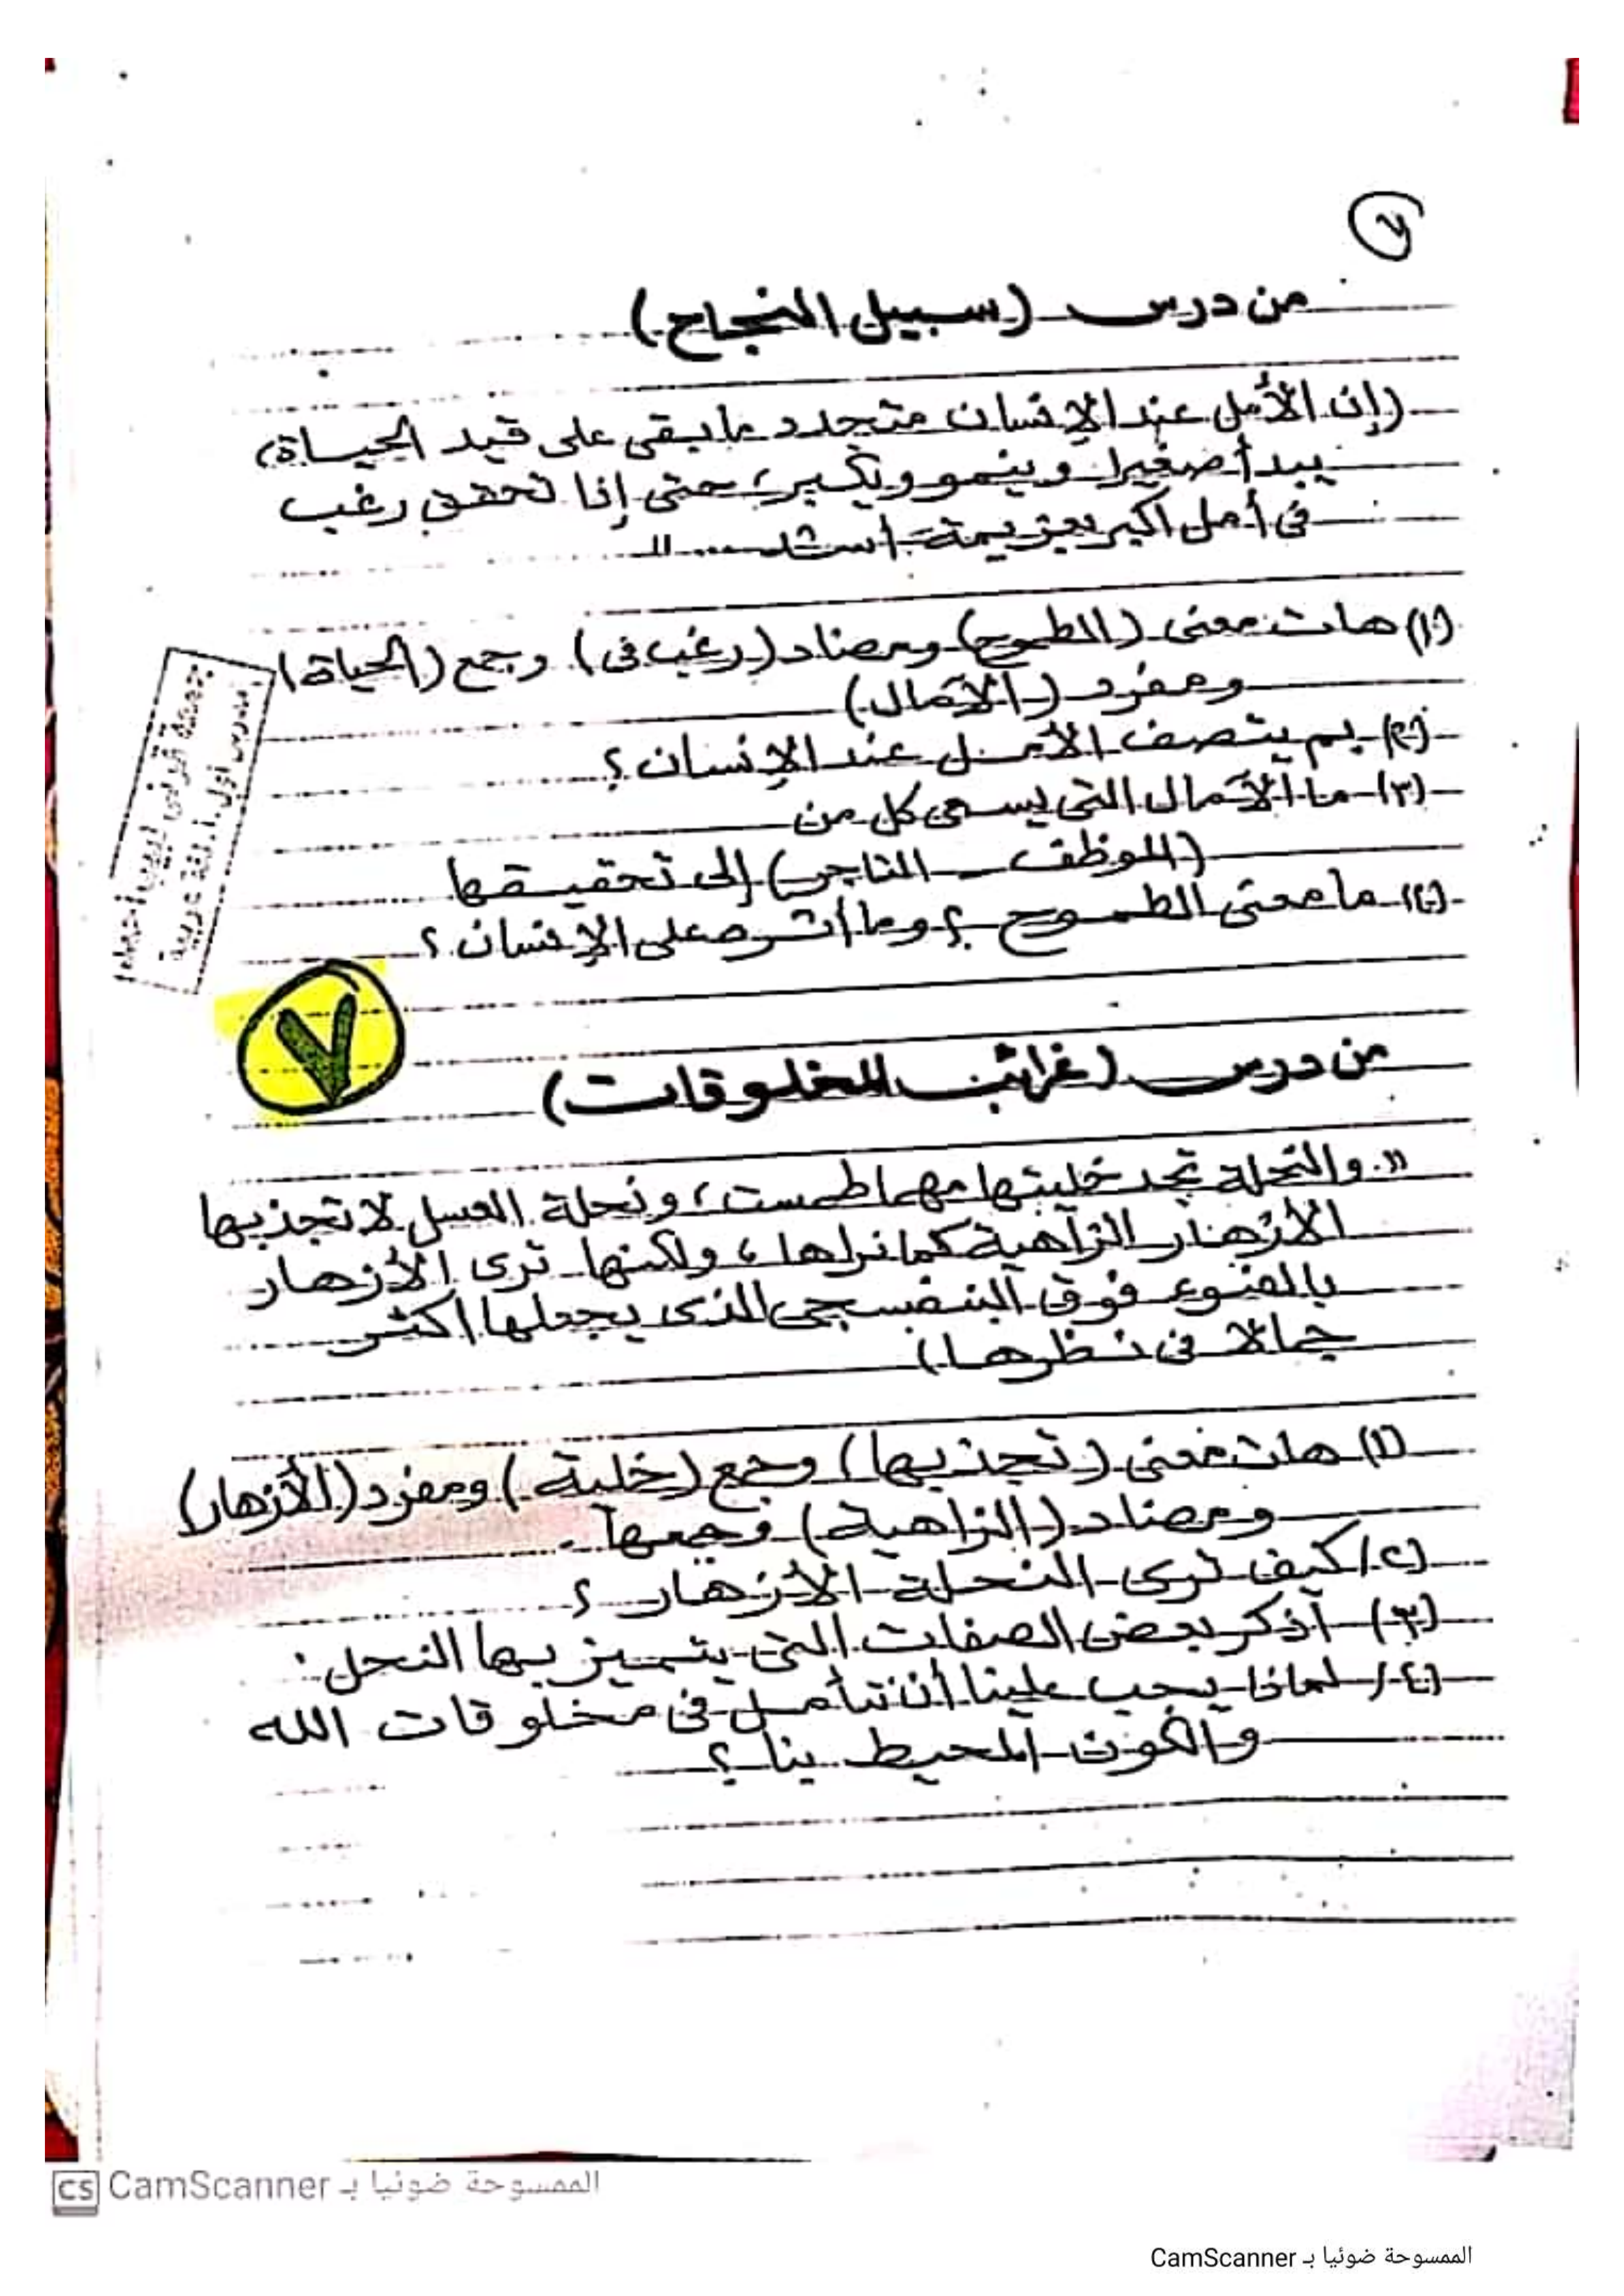 ٧
من درس (سبيل النجاح)
(إن الأمل عند الإنسان متجدد ما بقى على قيد الحياة،
يبدأ صغيرا وينمو ويكبر، حتى إذا تحقق رغب
فى أمل أكبر بعزيمة أشد .... "
(١) هات معنى (الطموح) ومضاد (رغب فى) وجمع (الحياة)
ومفرد (الآمال)
(٢) بم يتصف الأمل عند الإنسان؟
(٣) ما الآمال التى يسعى كل من
(الموظف - التاجر) إلى تحقيقها
(٤) ما معنى الطموح؟ وما أثره على الإنسان؟
مدرس أول أ. لغة عربية
٧
من درس (غرائب المخلوقات)
". والنحلة تجد خليتها مهما طمست، ونحلة العسل لا تجذبها
الأزهار الزاهية كما نراها، ولكنها ترى الأزهار
بالضوء فوق البنفسجى الذى يجعلها أكثر
جمالا فى نظرها)
(١) هات معنى (تجذبها) وجمع (خلية) ومفرد (الأزهار)
ومضاد (الزاهية) وجمعها.
(٢) كيف ترى النحلة الأزهار؟
(٣) أذكر بعض الصفات التى يتميز بها النحل:
(٤) لماذا يجب علينا أن نتأمل فى مخلوقات الله
والكون المحيط بنا؟
CS CamScanner الممسوحة ضوئيا بـ
الممسوحة ضوئيا بـ CamScanner